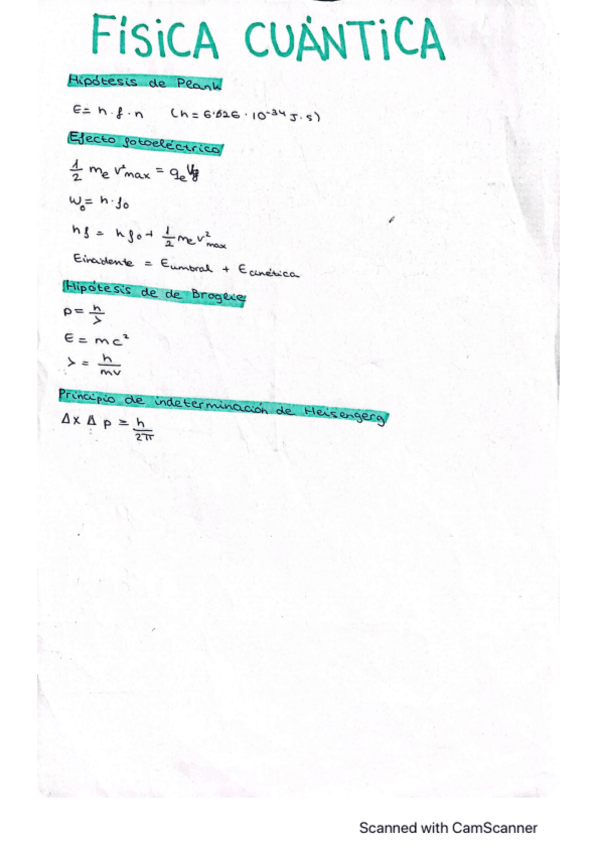 FÍSICA CUÁNTICA
Hipótesis de Plank
E= h·f·n (h = 6'626·10⁻³⁴ J·s)
Efecto fotoeléctrico
1/2 me v²max = qe Vf
W₀ = h·f₀
hf = hf₀ + 1/2 me v²max
Eincidente = Eumbral + Ecinética
Hipótesis de de Broglie
p = h/λ
E = mc²
λ = h/mv
Principio de indeterminación de Heisengerg
Δx Δp ≥ h/2π
Scanned with CamScanner